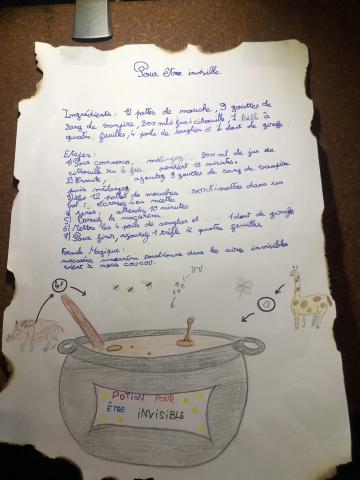 Pour être invisible
Ingrédients : 12 pattes de mouche, 9 gouttes de
sang de vampire, 200 ml de jus de citrouille, 1 trèfle à
quatre feuilles, 4 poils de sanglier et 1 dent de girafe.
Etapes :
1) Pour commencer, mélangez 200 ml de jus de
citrouille au feu pendant 12 minutes.
2) Ensuite, ajoutez 9 gouttes de sang de vampire
puis mélangez.
3) Les 12 pattes de mouches sont à mettre dans un
bol : écrasez en miette.
4) Après, attendez 10 minutes
5)
6) Mettre les 4 poils de sanglier et 1 dent de girafe
7) Pour finir, ajoutez 1 trèfle à quatre feuilles.
Formule Magique :
dans les aires invisibles
vient à nous coucou.
4
1
POTION POUR
ÊTRE INVISIBLE